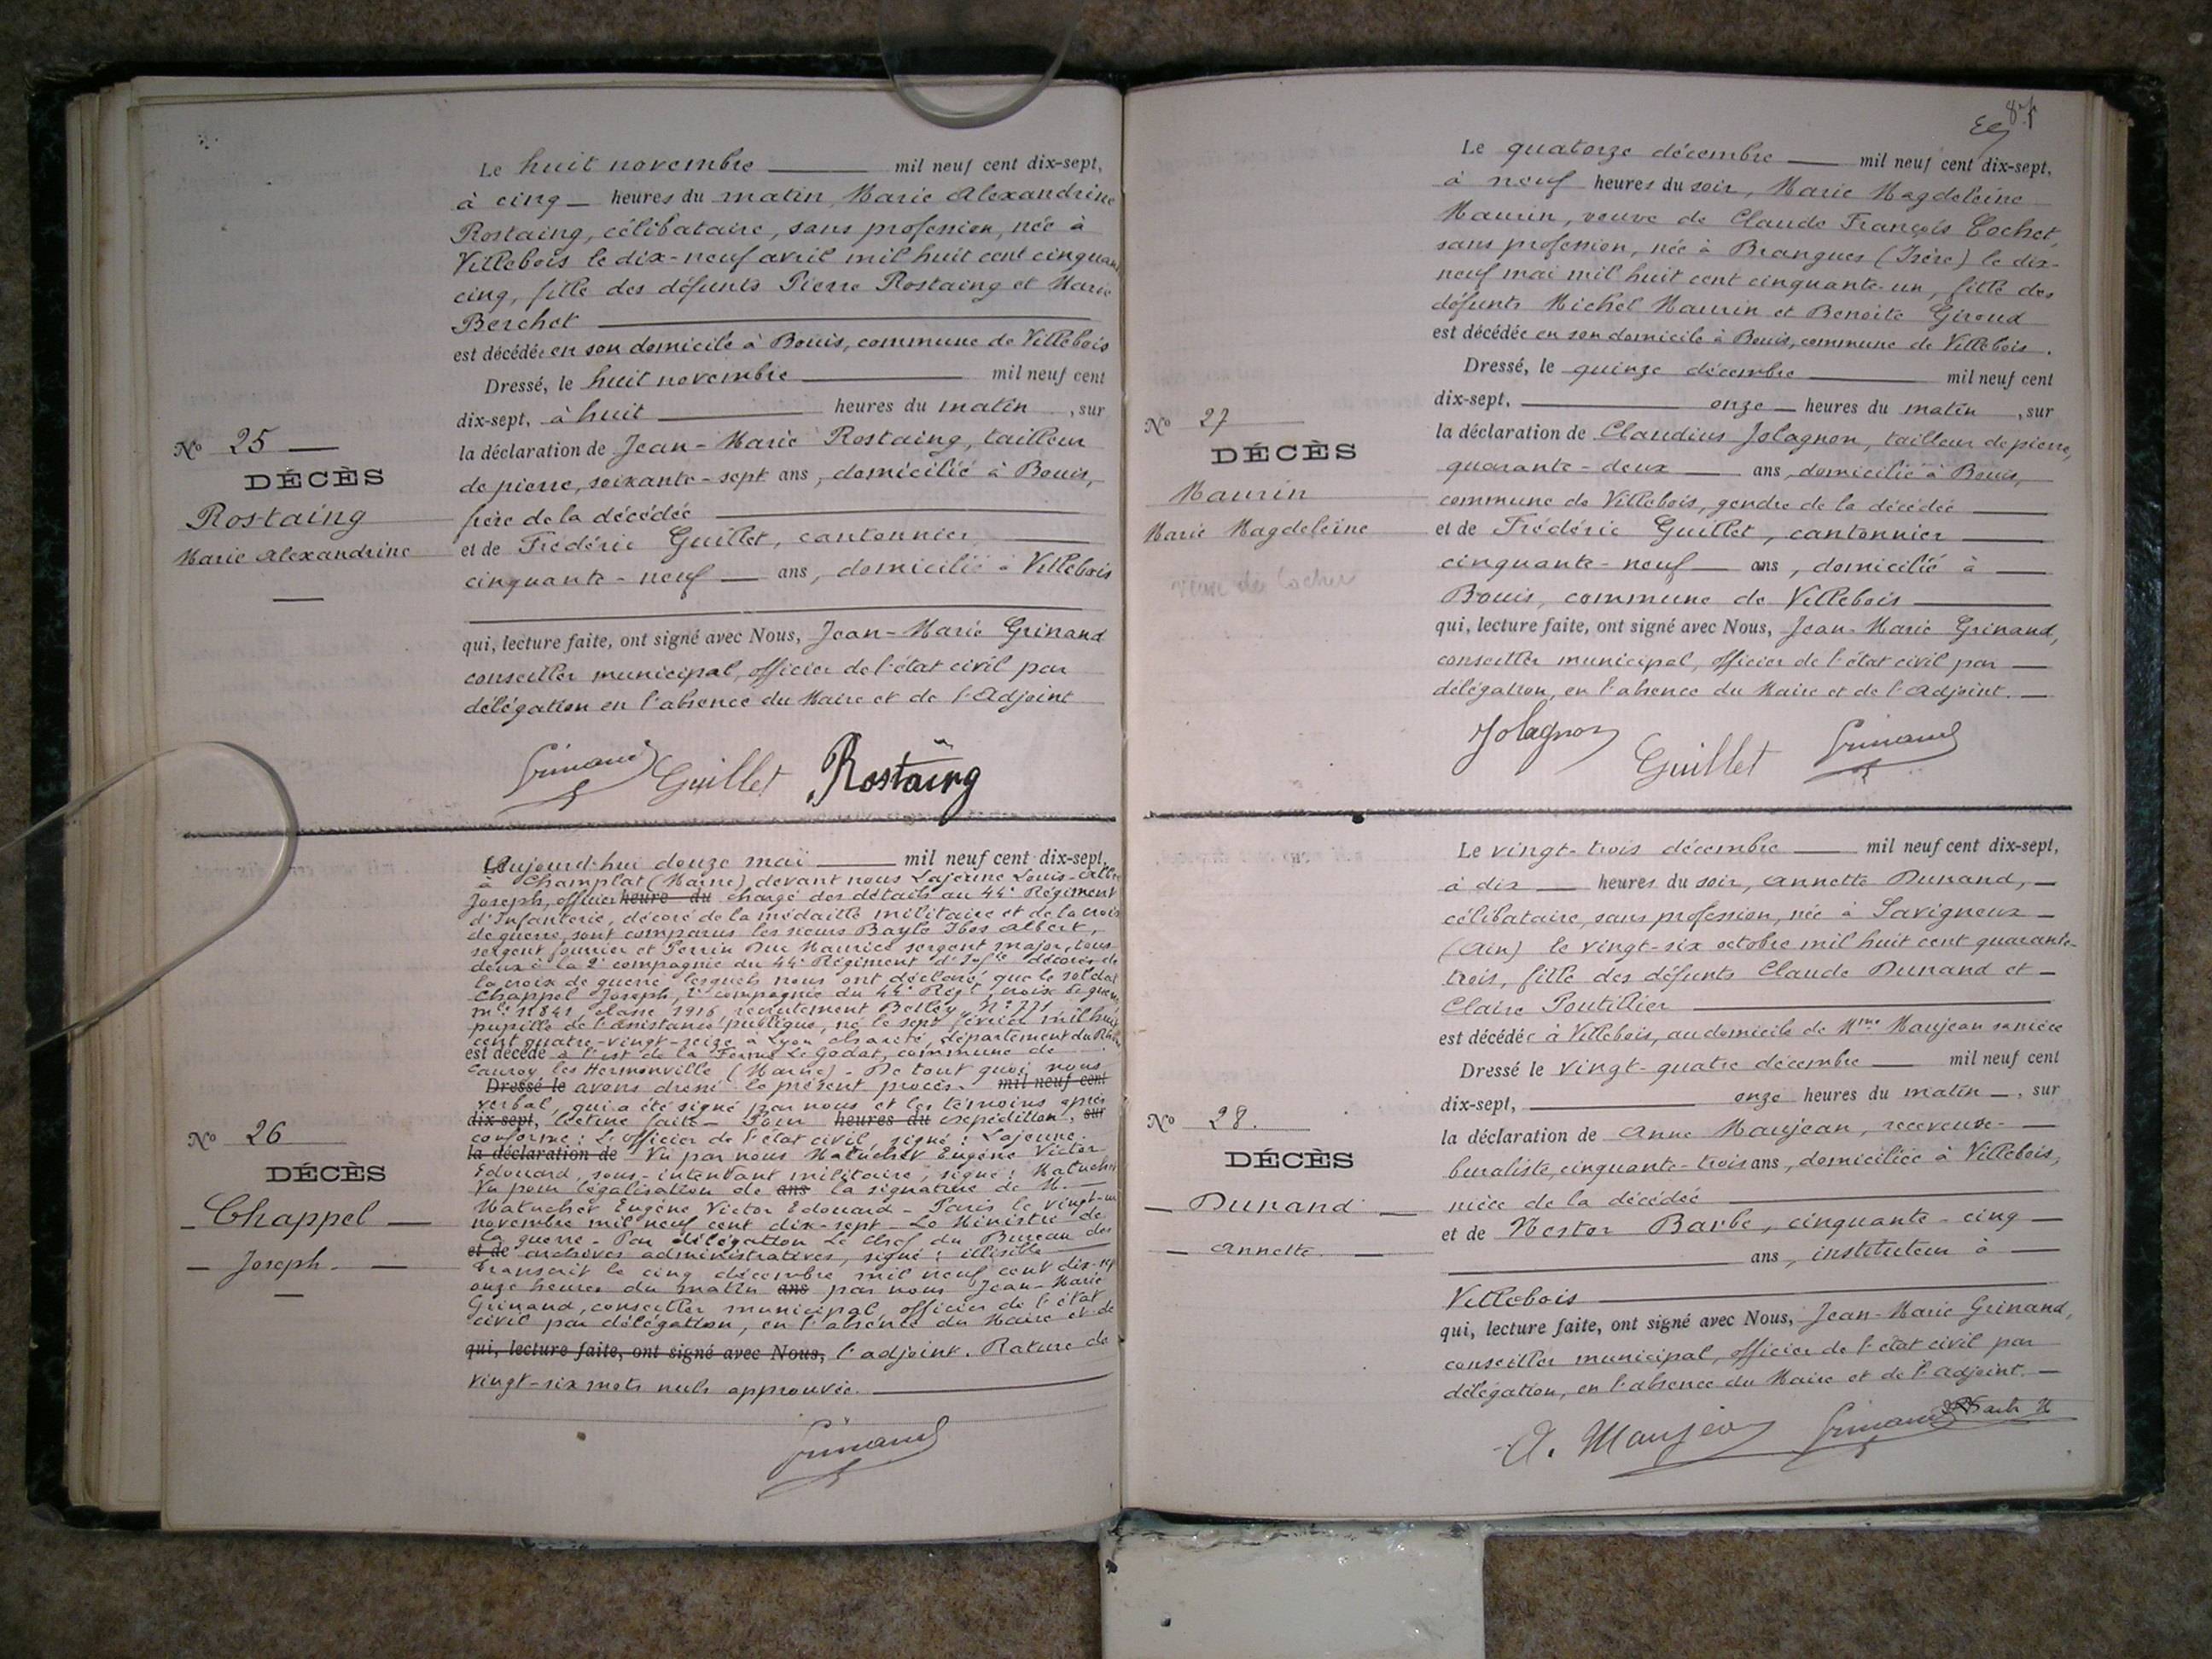 Le huit novembre mil neuf cent dix-sept,
à cinq heures du matin, Marie Alexandrine
Rostaing, célibataire, sans profession, née à
Villebois le dix-neuf avril mil huit cent cinquante
cinq, fille des défunts Pierre Rostaing et Marie
Berchet
est décédée en son domicile à Bouis, commune de Villebois
Dressé, le huit novembre mil neuf cent
dix-sept, à huit heures du matin, sur
la déclaration de Jean-Marie Rostaing, tailleur
de pierre, soixante-sept ans, domicilié à Bouis,
frère de la décédée
et de Frédéric Guillet, cantonnier,
cinquante-neuf ans, domicilié à Villebois
qui, lecture faite, ont signé avec Nous, Jean-Marie Grinand
conseiller municipal, officier de l'état civil par
délégation en l'absence du Maire et de l'Adjoint
Grinand Guillet Rostaing
No 25
DÉCÈS
Rostaing
Marie Alexandrine
Aujourd'hui douze mai mil neuf cent dix-sept,
à Champlat (Marne) devant nous Lajeune Louis
Joseph, officier heure du chargé des détails au 44e Régiment
d'Infanterie, décoré de la médaille militaire et de la croix
de guerre, sont comparus les sieurs Bayle Ibos Albert,
sergent fourrier et Perrin Duc Maurice sergent major, tous
deux à la 2e compagnie du 44e Régiment d'Infie décorés de
la croix de guerre lesquels nous ont déclaré que le soldat
Chappel Joseph, 2e compagnie du 44e Régt, croix de guerre,
mle 11841, classe 1916, recrutement Belley, No 771,
pupille de l'assistance publique, né le sept février mil huit
cent quatre-vingt-seize à Lyon, département du Rhône
est décédé à l'est de la Ferme Le Godat, commune de
Cauroy les Hermonville (Marne) - De tout quoi nous
Dressé le avons dressé le présent procès- mil neuf cent
verbal, qui a été signé par nous et les témoins après
dix-sept, lecture faite - Pour heures du expédition, sur
conforme : L'officier de l'état civil, signé : Lajeune.
la déclaration de Vu par nous Matuchet Eugène Victor
Edouard, sous-intendant militaire, signé : Matuchet
Vu pour légalisation de ans la signature de M.
Matuchet Eugène Victor Edouard - Paris le vingt-un
novembre mil neuf cent dix-sept - Le Ministre de
la guerre - Par délégation Le chef du Bureau des
et de archives administratives, signé : illisible
Transcrit le cinq décembre mil neuf cent dix-sept
onze heures du matin ans par nous Jean-Marie
Grinand, conseiller municipal, officier de l'état
civil par délégation, en l'absence du Maire et de
qui, lecture faite, ont signé avec Nous, l'adjoint. Rature de
vingt-six mots nuls approuvée.
Grinand
No 26
DÉCÈS
Chappel
Joseph
87
Le quatorze décembre mil neuf cent dix-sept,
à neuf heures du soir, Marie Magdeleine
Maurin, veuve de Claude François Cochet,
sans profession, née à Brangues (Isère) le dix-
neuf mai mil huit cent cinquante-un, fille des
défunts Michel Maurin et Benoite Giroud
est décédée en son domicile à Bouis, commune de Villebois.
Dressé, le quinze décembre mil neuf cent
dix-sept, onze heures du matin, sur
la déclaration de Claudius Jolagnon, tailleur de pierre,
quarante-deux ans, domicilié à Bouis,
commune de Villebois, gendre de la décédée
et de Frédéric Guillet, cantonnier
cinquante-neuf ans, domicilié à
Bouis, commune de Villebois
qui, lecture faite, ont signé avec Nous, Jean-Marie Grinand,
conseiller municipal, officier de l'état civil par
délégation, en l'absence du Maire et de l'Adjoint.
Jolagnon Guillet Grinand
No 27
DÉCÈS
Maurin
Marie Magdeleine
veuve de Cochet
Le vingt-trois décembre mil neuf cent dix-sept,
à dix heures du soir, Annette Dunand,
célibataire, sans profession, née à Savigneux
(Ain) le vingt-six octobre mil huit cent quarante-
trois, fille des défunts Claude Dunand et
Claire Poutillier
est décédée à Villebois, au domicile de Mme Maujean sa nièce
Dressé le vingt-quatre décembre mil neuf cent
dix-sept, onze heures du matin, sur
la déclaration de Anne Maujean, receveuse-
buraliste, cinquante-trois ans, domiciliée à Villebois,
nièce de la décédée
et de Nestor Barbe, cinquante-cinq
ans, instituteur à
Villebois
qui, lecture faite, ont signé avec Nous, Jean-Marie Grinand,
conseiller municipal, officier de l'état civil par
délégation, en l'absence du Maire et de l'Adjoint.
A. Maujean Grinand
No 28.
DÉCÈS
Dunand
Annette